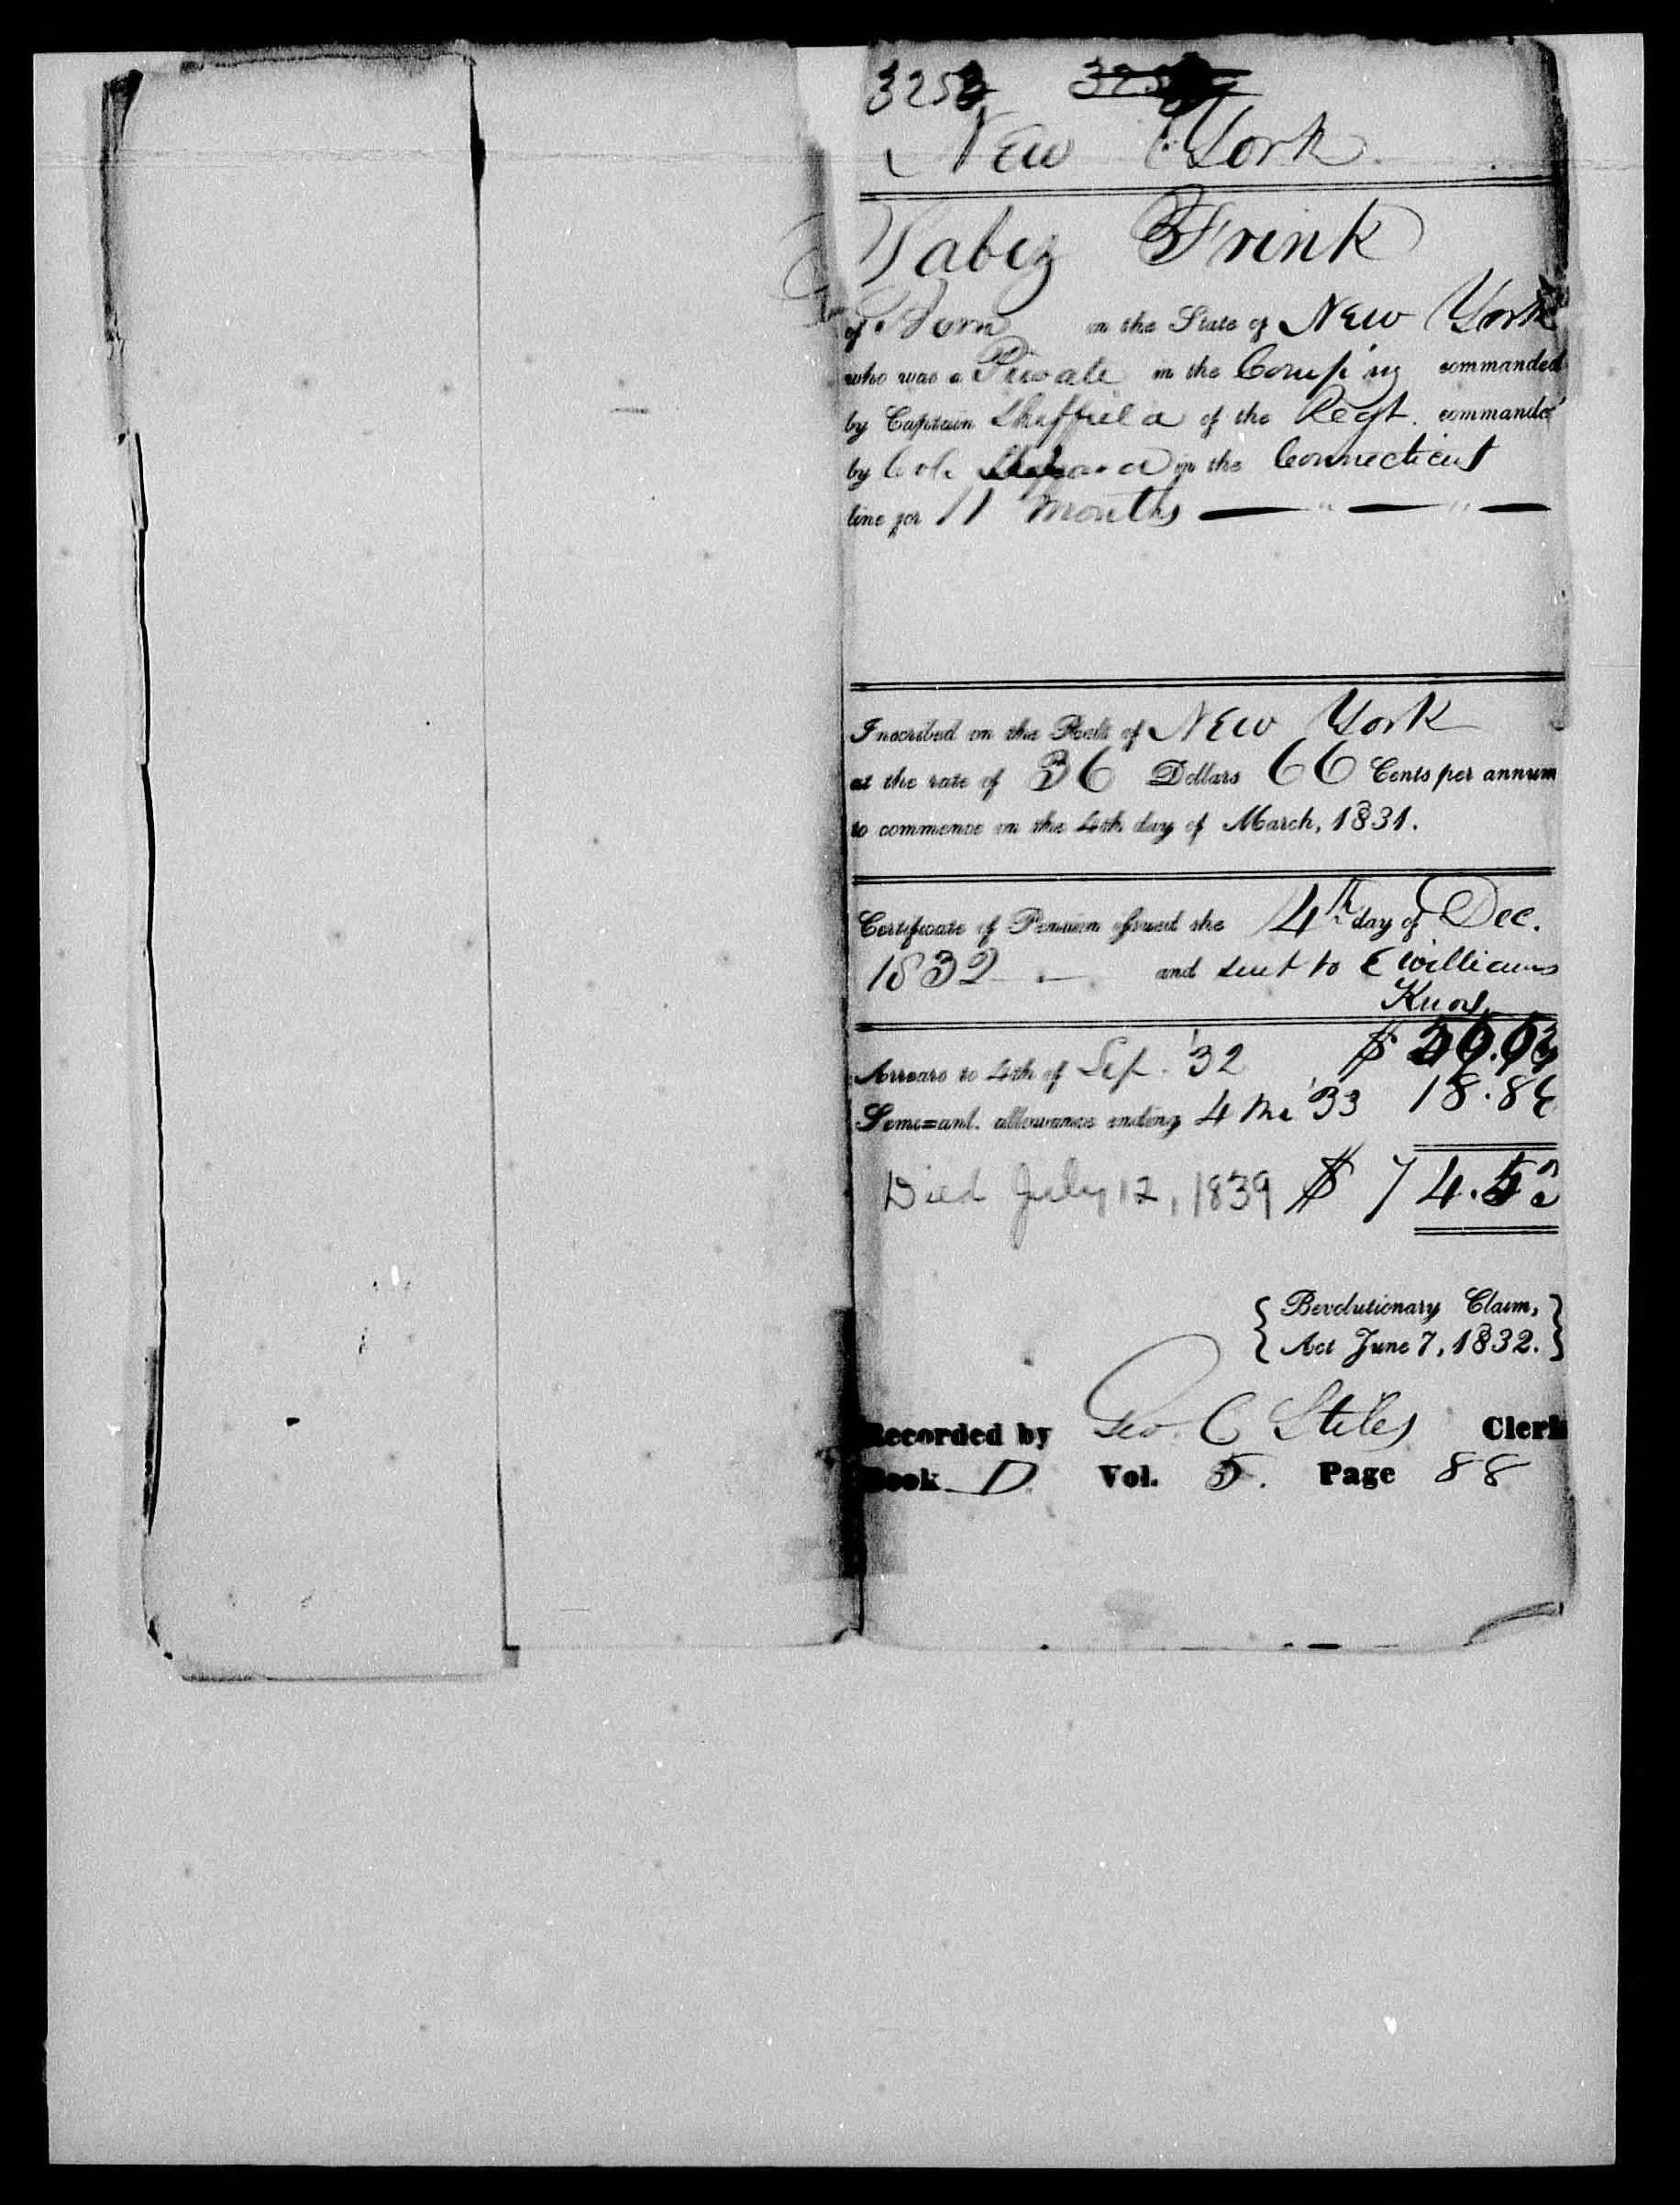 3253
New York
Jabez Frink
of in the State of New York
who was a Private in the Comp'ny commanded
by Captain Sheffield of the Regt. commanded
by Col. in the Connecticut
line for 11 months
Inscribed on the Roll of New York
at the rate of 36 Dollars 66 Cents per annum
to commence on the 4th day of March, 1831.
Certificate of Pension issued the 4th day of Dec.
1832 and sent to E Williams
Arrears to 4th of Sep. '32 $
Semi-anl. allowance ending 4 Mc '33 18.
Died July 12, 1839 $ 74.
{ Revolutionary Claim, }
{ Act June 7, 1832. }
Recorded by Geo. C Stiles Clerk
Book D Vol. 5. Page 88